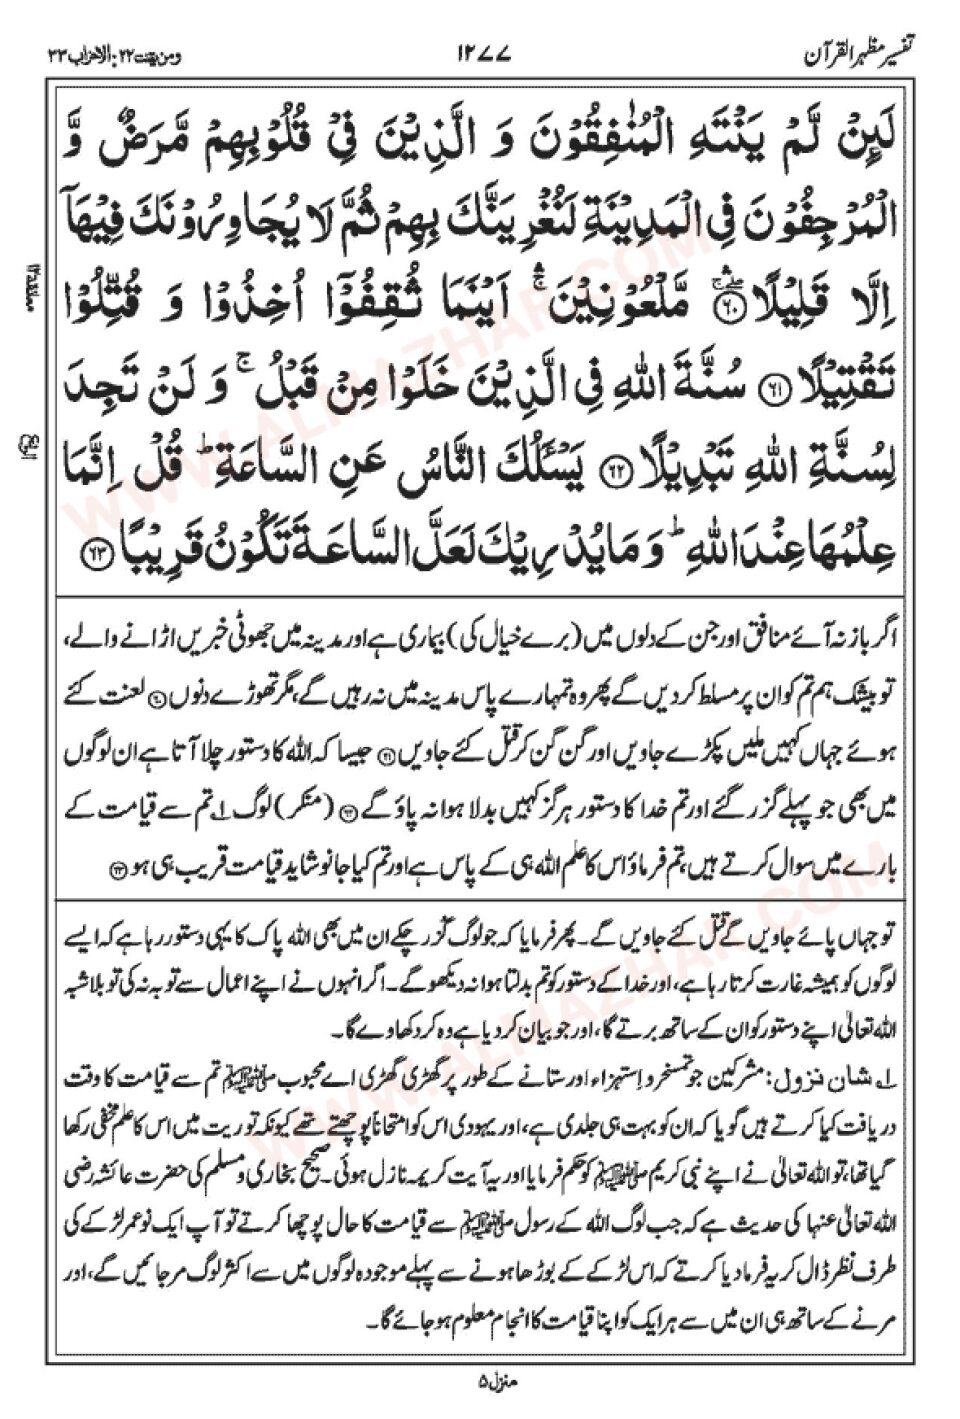 تفسیر مظہر القرآن ۱۲۷۷ ومن یقنت ۲۲: الاحزاب ۳۳
لَئِنْ لَّمْ یَنْتَهِ الْمُنٰفِقُوْنَ وَ الَّذِیْنَ فِیْ قُلُوْبِهِمْ مَّرَضٌ وَّ
الْمُرْجِفُوْنَ فِی الْمَدِیْنَةِ لَنُغْرِیَنَّكَ بِهِمْ ثُمَّ لَا یُجَاوِرُوْنَكَ فِیْهَاۤ
اِلَّا قَلِیْلًا ۛۖۚ ﴿۶۰﴾ مَّلْعُوْنِیْنَ ۛۚ اَیْنَمَا ثُقِفُوْۤا اُخِذُوْا وَ قُتِّلُوْا
تَقْتِیْلًا ﴿۶۱﴾ سُنَّةَ اللهِ فِی الَّذِیْنَ خَلَوْا مِنْ قَبْلُ ۚ وَ لَنْ تَجِدَ
لِسُنَّةِ اللهِ تَبْدِیْلًا ﴿۶۲﴾ یَسْـَٔلُكَ النَّاسُ عَنِ السَّاعَةِ ؕ قُلْ اِنَّمَا
عِلْمُهَا عِنْدَ اللهِ ؕ وَ مَا یُدْرِیْكَ لَعَلَّ السَّاعَةَ تَكُوْنُ قَرِیْبًا ﴿۶۳﴾
معانقة ۱۲
الربع
اگر باز نہ آئے منافق اور جن کے دلوں میں (برے خیال کی) بیماری ہے اور مدینہ میں جھوٹی خبریں اڑانے والے،
تو بیشک ہم تم کو ان پر مسلط کردیں گے پھر وہ تمہارے پاس مدینہ میں نہ رہیں گے، مگر تھوڑے دنوں ﴿۶۰﴾ لعنت کئے
ہوئے جہاں کہیں ملیں پکڑے جاویں اور گن گن کر قتل کئے جاویں ﴿۶۱﴾ جیسا کہ اللہ کا دستور چلا آتا ہے ان لوگوں
میں بھی جو پہلے گزر گئے اور تم خدا کا دستور ہرگز کہیں بدلا ہوا نہ پاؤ گے ﴿۶۲﴾ (منکر) لوگ ۱؎ تم سے قیامت کے
بارے میں سوال کرتے ہیں، تم فرماؤ اس کا علم اللہ ہی کے پاس ہے اور تم کیا جانو شاید قیامت قریب ہی ہو ﴿۶۳﴾
تو جہاں پائے جاویں گے قتل کئے جاویں گے۔ پھر فرمایا کہ جو لوگ گزر چکے ان میں بھی اللہ پاک کا یہی دستور رہا ہے کہ ایسے
لوگوں کو ہمیشہ غارت کرتا رہا ہے، اور خدا کے دستور کو تم بدلتا ہوا نہ دیکھو گے۔ اگر انہوں نے اپنے اعمال سے توبہ نہ کی تو بلاشبہ
اللہ تعالیٰ اپنے دستور کو ان کے ساتھ برتے گا، اور جو بیان کردیا ہے وہ کر دکھاوے گا۔
۱؎ شان نزول: مشرکین جو تمسخر و استہزاء اور ستانے کے طور پر گھڑی گھڑی اے محبوب ﷺ تم سے قیامت کا وقت
دریافت کیا کرتے ہیں گویا کہ ان کو بہت ہی جلدی ہے، اور یہودی اس کو امتحاناً پوچھتے تھے کیونکہ توریت میں اس کا علم مخفی رکھا
گیا تھا، تو اللہ تعالیٰ نے اپنے نبی کریم ﷺ کو حکم فرمایا اور یہ آیت کریمہ نازل ہوئی۔ صحیح بخاری و مسلم کی حضرت عائشہ رضی
اللہ تعالیٰ عنہا کی حدیث ہے کہ جب لوگ اللہ کے رسول ﷺ سے قیامت کا حال پوچھا کرتے تو آپ ایک نوعمر لڑکے کی
طرف نظر ڈال کر یہ فرمادیا کرتے کہ اس لڑکے کے بوڑھا ہونے سے پہلے موجودہ لوگوں میں سے اکثر لوگ مرجائیں گے، اور
مرنے کے ساتھ ہی ان میں سے ہر ایک کو اپنا قیامت کا انجام معلوم ہوجائے گا۔
منزل ۵
WWW.ALMAZHAR.COM
WWW.ALMAZHAR.COM